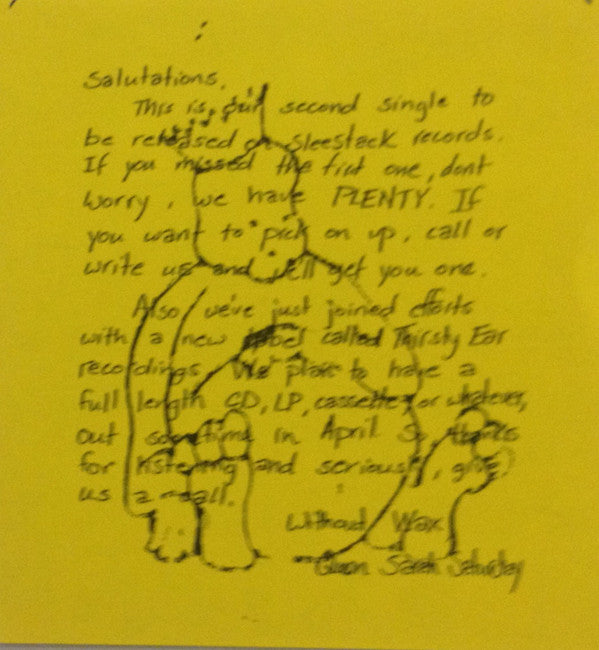 Salutations,
This is our second single to
be released on Sleestack records.
If you missed the first one, dont
worry, we have PLENTY. If
you want to pick on up, call or
write us and we'll get you one.
Also we've just joined efforts
with a new label called Thirsty Ear
recordings. We plan to have a
full length CD, LP, cassette, or whatever,
out sometime in April So, thanks
for listening and seriously, give
us a call.
Without Wax
Sarah Saturday